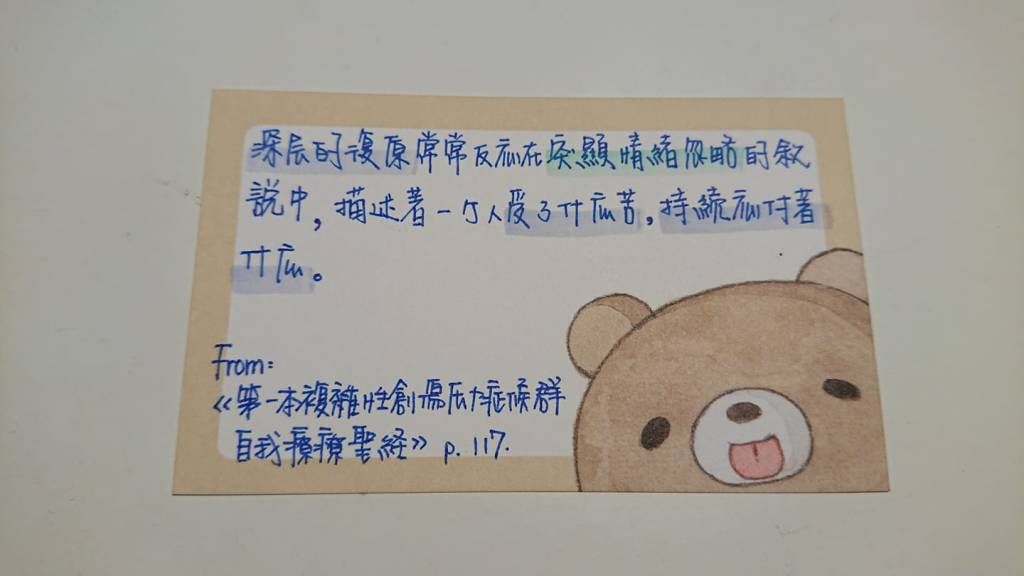 深层的復原常常反应在突顯情緒忽略的敘
說中，描述着一个人受了什么苦，持続应付着
什么。
From:
《第一本複雜性創傷压力症候群
自我療癒聖経》 p. 117.